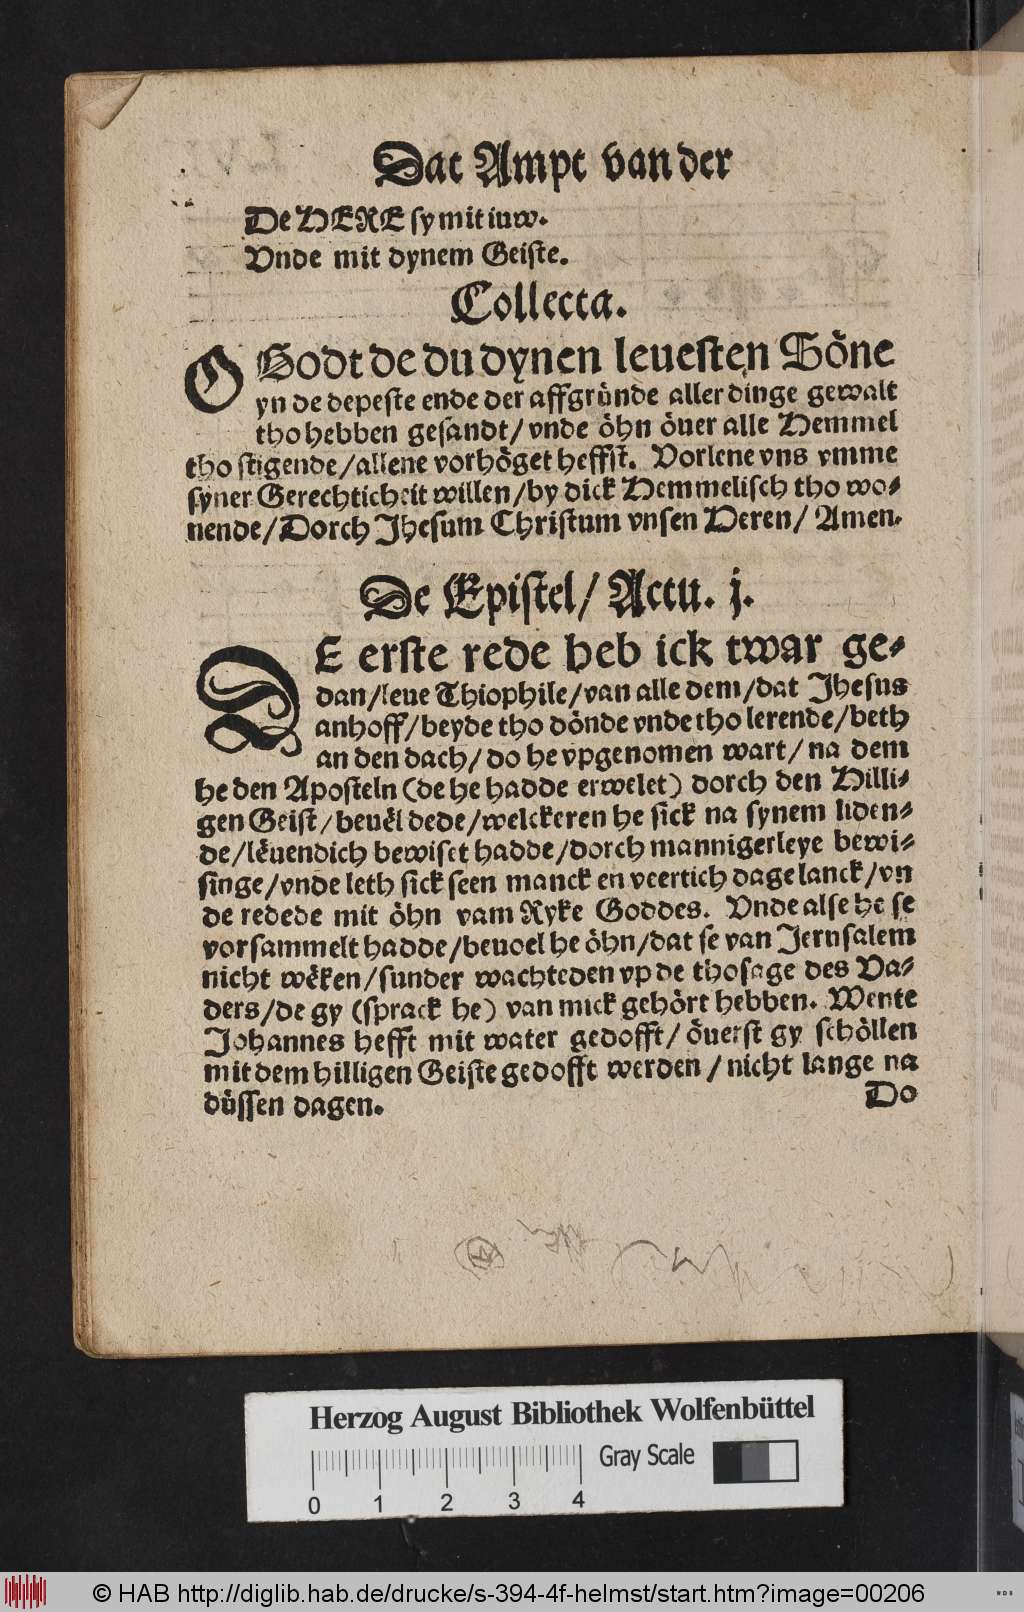 Dat Ampt van der
De HERE sy mit iuw.
Vnde mit dynem Geiste.
Collecta.
O Godt de du dynen leuesten Söne
yn de depeste ende der affgründe aller dinge gewalt
tho hebben gesandt/ vnde öhn öuer alle Hemmel
tho stigende/ allene vorhöget heffst. Vorlene vns vmme
syner Gerechticheit willen/ by dick Hemmelisch tho wo-
nende/ Dorch Jhesum Christum vnsen Heren/ Amen.
De Epistel/ Actu. j.
DE erste rede heb ick twar ge-
dan/ leue Thiophile/ van alle dem/ dat Jhesus
anhoff/ beyde tho dönde vnde tho lerende/ beth
an den dach/ do he vpgenomen wart/ na dem
he den Aposteln (de he hadde erwelet) dorch den Hilli-
gen Geist/ beuël dede/ welckeren he sick na synem liden-
de/ lëuendich bewiset hadde/ dorch mannigerleye bewi-
singe/ vnde leth sick seen manck en veertich dage lanck/ vn
de redede mit öhn vam Ryke Goddes. Vnde alse he se
vorsammelt hadde/ beuoel he öhn/ dat se van Jerusalem
nicht wëken/ sunder wachteden vp de thosage des Va-
ders/ de gy (sprack he) van mick gehört hebben. Wente
Johannes hefft mit water gedofft/ öuerst gy schöllen
mit dem hilligen Geiste gedofft werden/ nicht lange na
düssen dagen.
Do
Herzog August Bibliothek Wolfenbüttel
Gray Scale
0 1 2 3 4
© HAB http://diglib.hab.de/drucke/s-394-4f-helmst/start.htm?image=00206